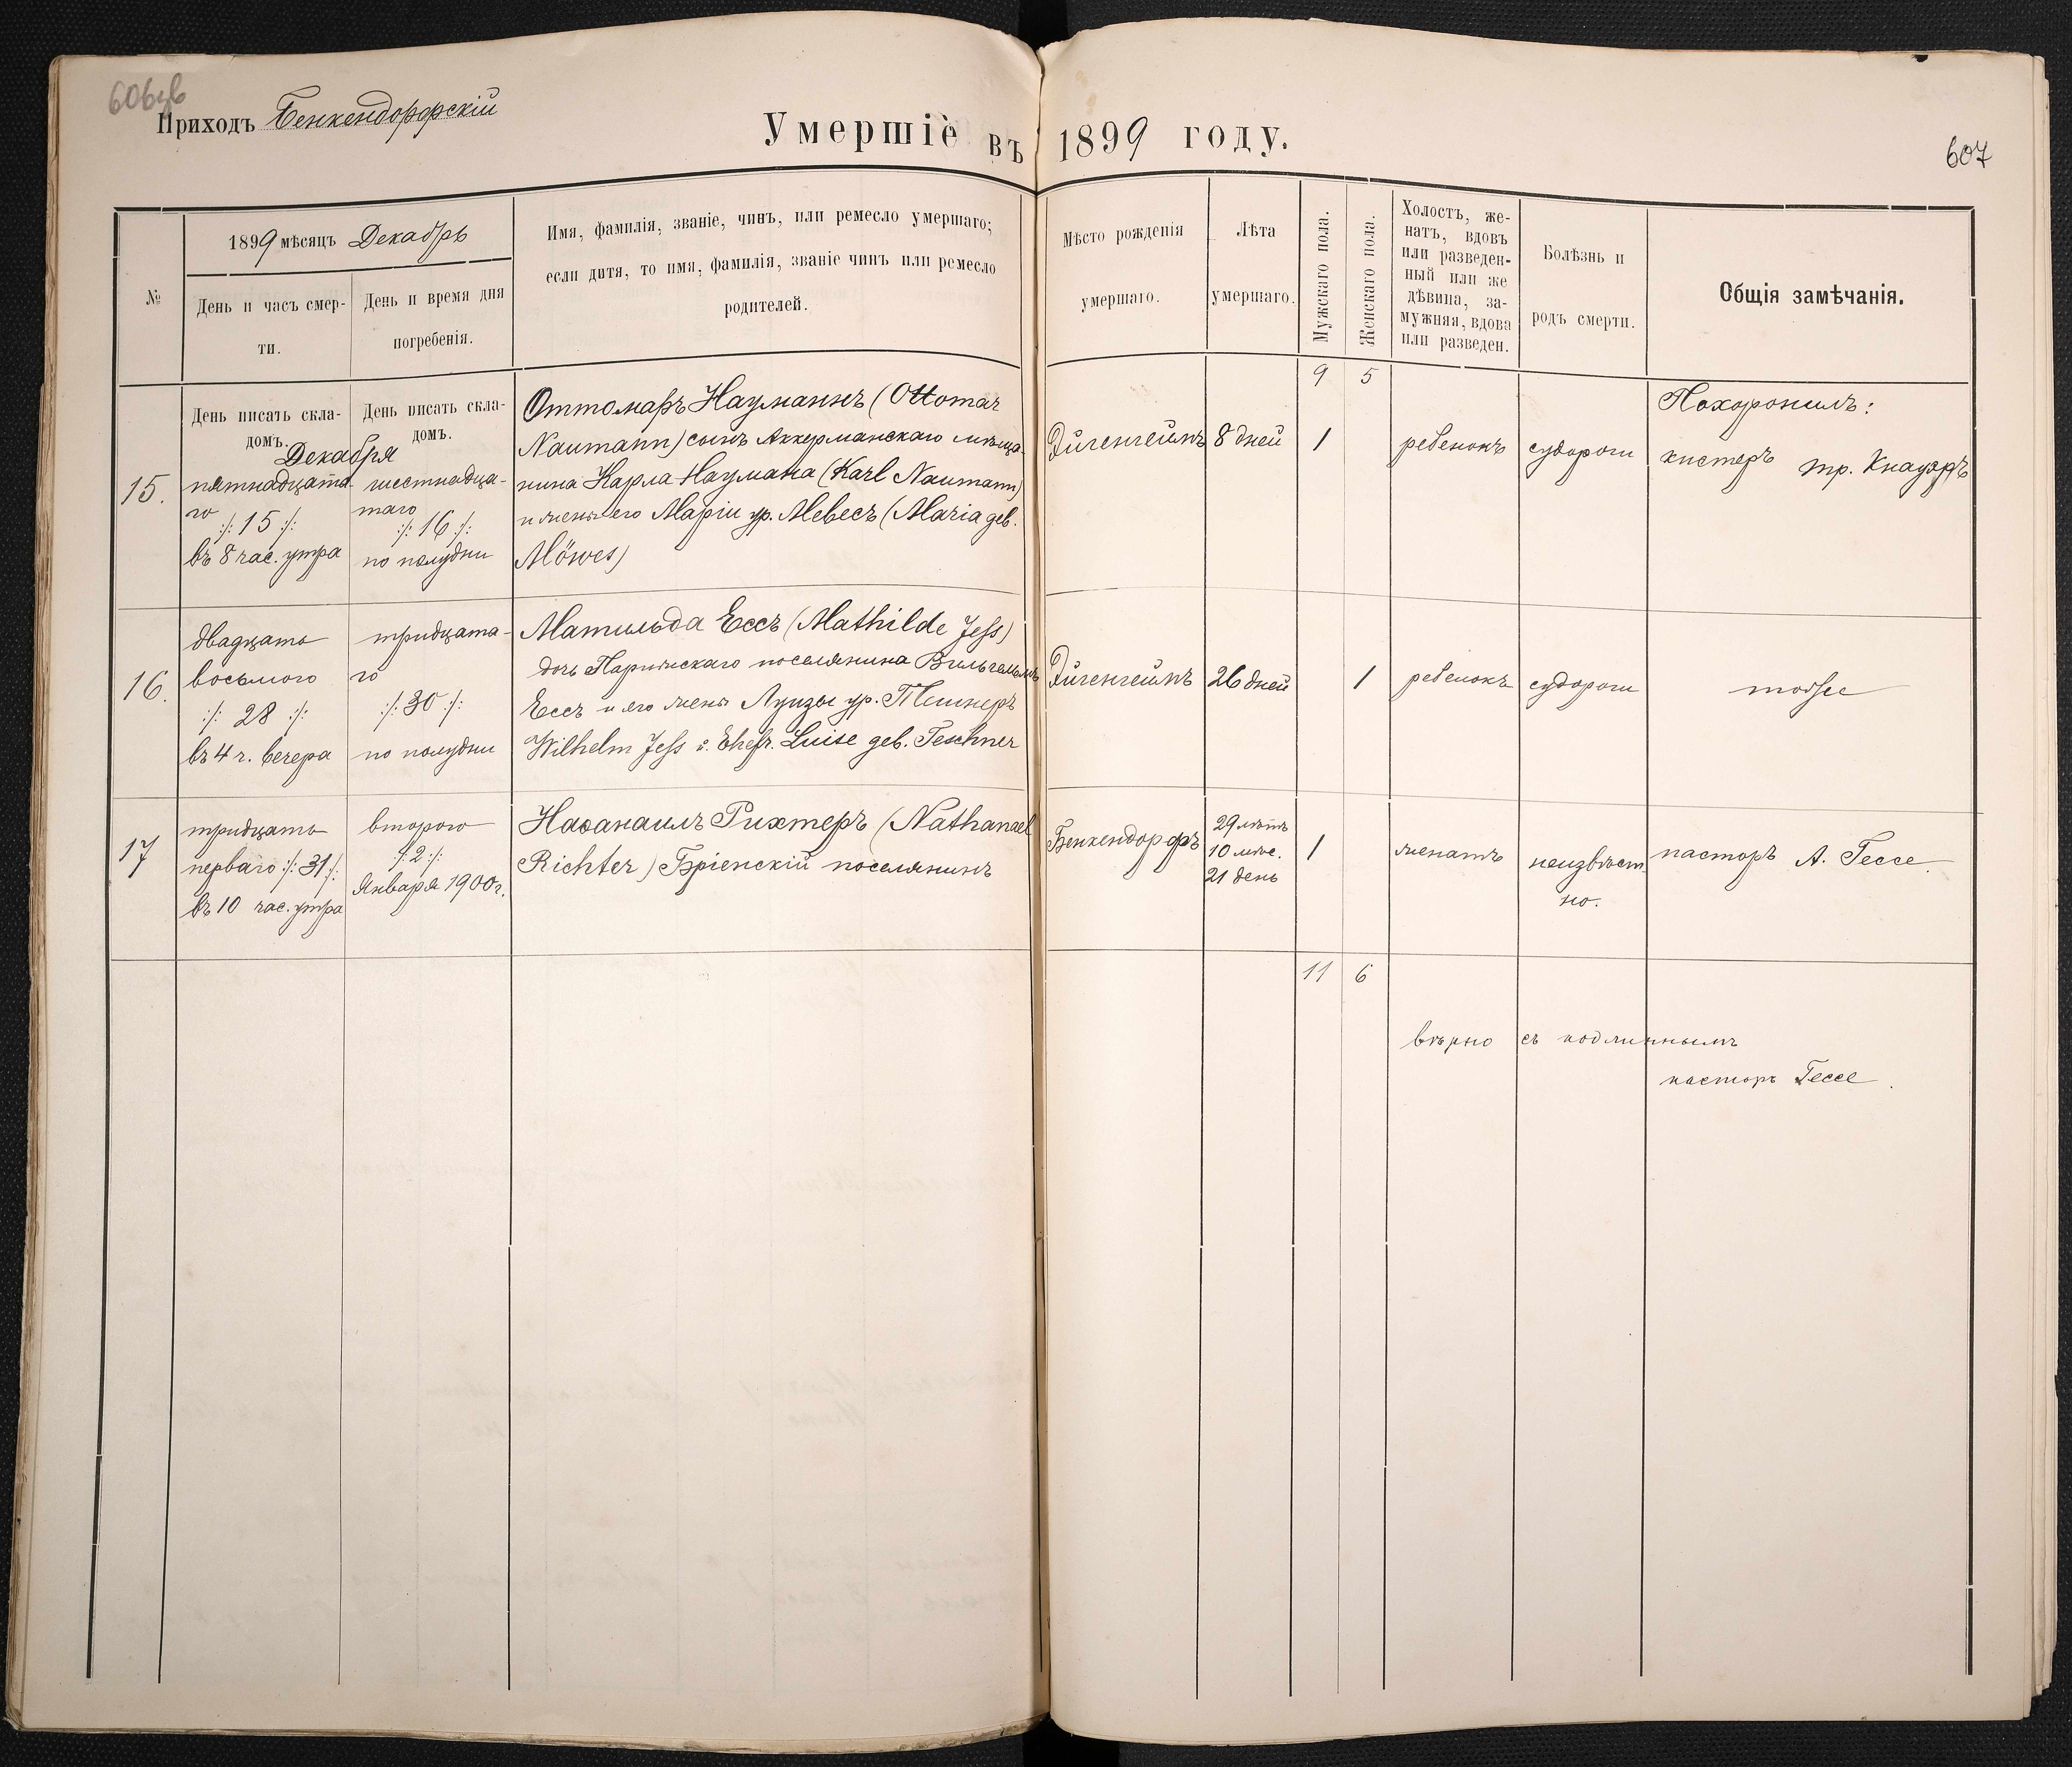 606 об
Приходъ Бенкендорфскій
Умершіе въ 1899 году.
607
№
1899 мѣсяцъ Декабрь
День и часъ смер-
ти.
День и время дня
погребенія.
Имя, фамилія, званіе, чинъ, или ремесло умершаго;
если дитя, то имя, фамилія, званіе чинъ или ремесло
родителей.
Мѣсто рожденія
умершаго.
Лѣта
умершаго.
Мужскаго пола.
Женскаго пола.
Холостъ, же-
натъ, вдовъ
или разведен-
ный или же
дѣвица, за-
мужняя, вдова
или разведен.
Болѣзнь и
родъ смерти.
Общія замѣчанія.
9 5
День писать скла-
домъ.
День писать скла-
домъ.
Декабря
15.
пятнадцата-
го
:/: 15 :/:
въ 8 час. утра
шестнадца-
таго
:/: 16 :/:
по полудни
Оттомаръ Науманнъ (Ottomar
Naumann) сынъ Аккерманскаго мѣща-
нина Карла Наумана (Karl Naumann)
и жены его Маріи ур. Мевесъ (Maria geb.
Möwes)
Эйгенгеймъ
8 дней
1
ребенокъ
судороги
Похоронилъ:
кистеръ тр. Кнауэръ
16.
двадцать
восьмого
:/: 28 :/:
въ 4 ч. вечера
тридцата-
го
:/: 30 :/:
по полудни
Матильда Ессъ (Mathilde Jeſs)
дочь Парижскаго поселянина Вильгельмъ
Ессъ и его жены Луизы ур. Тешнеръ
Wilhelm Jeſs u. Ehefr. Luise geb. Teschner
Эйгенгеймъ
26 дней
1
ребенокъ
судороги
тойже
17
тридцать
перваго :/: 31 :/:
въ 10 час. утра
второго
:/: 2 :/:
Января 1900 г.
Наѳанаилъ Рихтеръ (Nathanael
Richter) Бріенскій поселянинъ
Бенкендорфъ
29 лѣтъ
10 мѣс.
21 день
1
женатъ
неизвѣст-
но.
пасторъ А. Гессе.
11 6
вѣрно съ подлиннымъ
пасторъ Гессе.